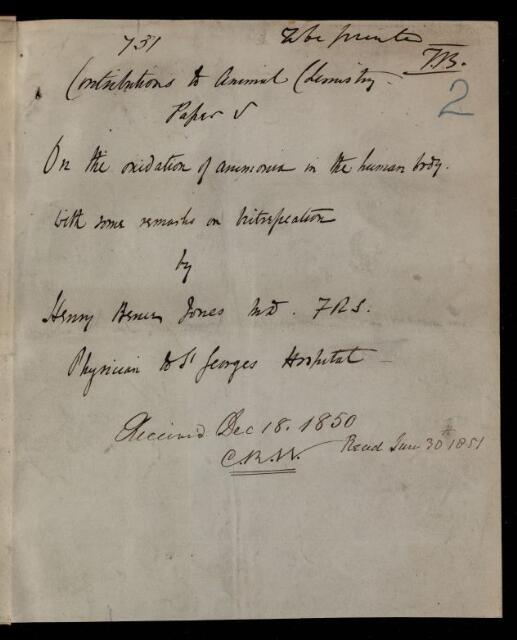 751
To be printed
TB.
2
Contributions to Animal Chemistry
Paper V
On the oxidation of ammonia in the human body.
with some remarks on Nitrification
by
Henry Bence Jones M.D. F.R.S.
Physician to St Georges Hospital
Received Dec 18. 1850
C.R.W.
Read Jan 30th 1851